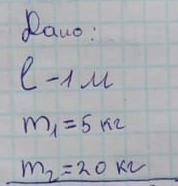 Дано:
l - 1 м
m₁ = 5 кг
m₂ = 20 кг